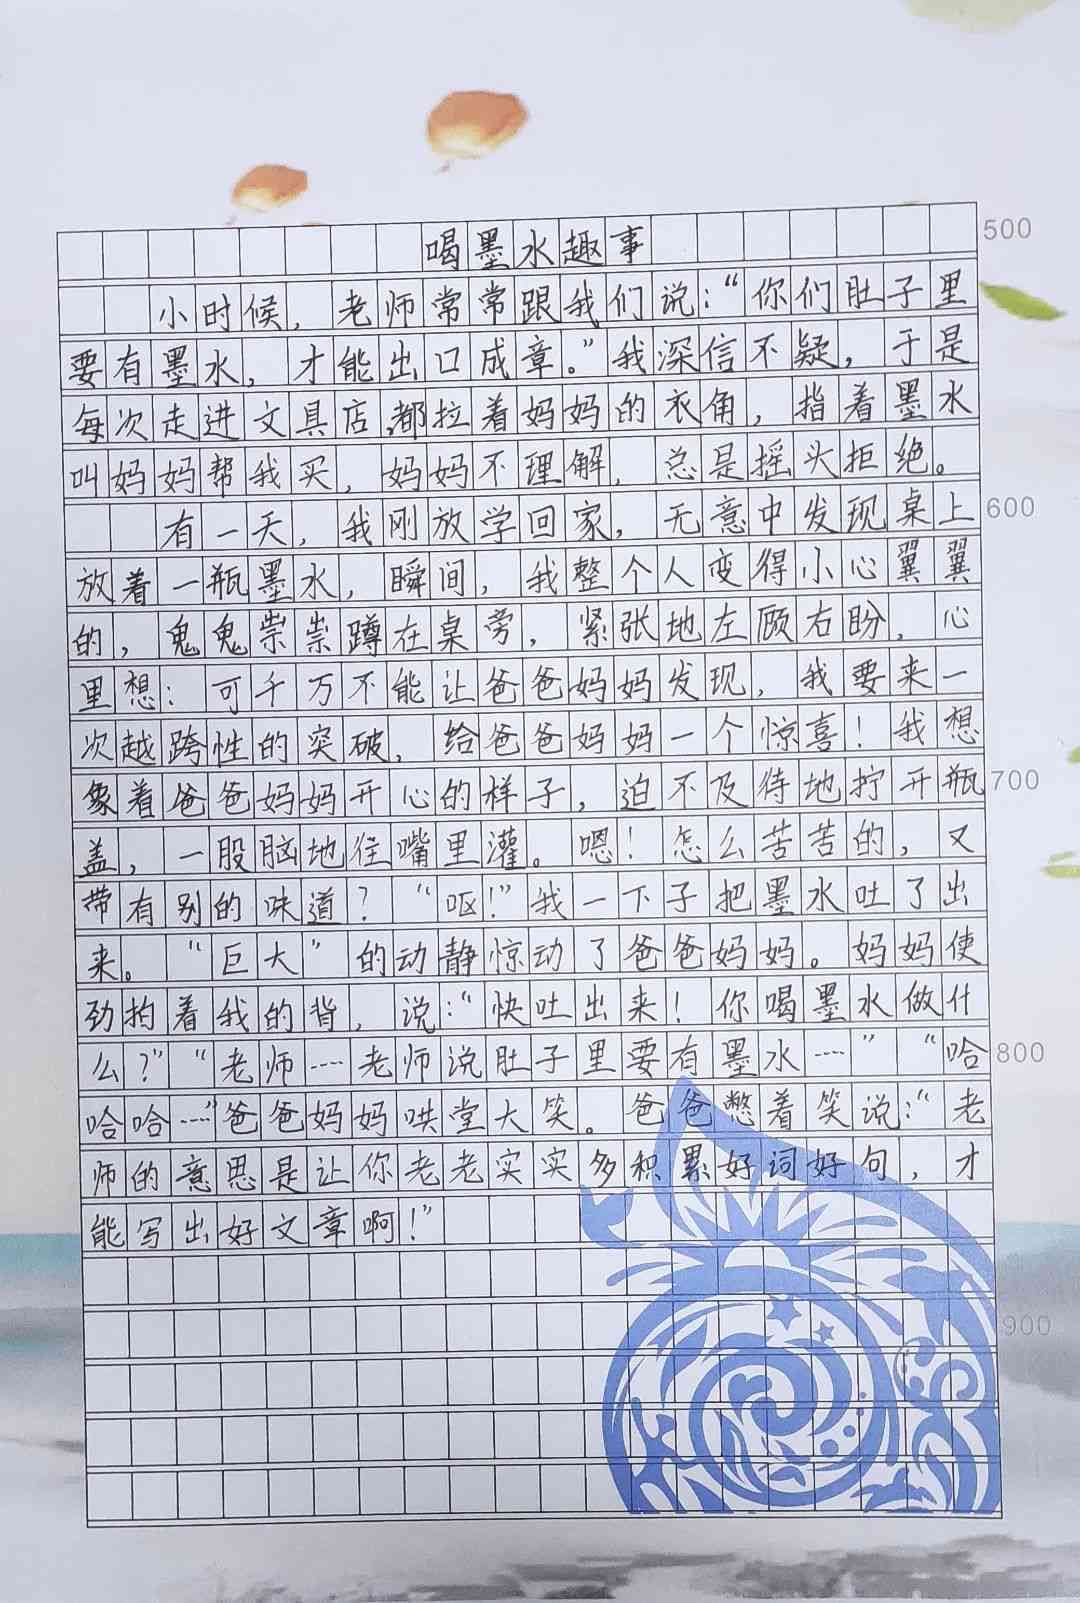 喝墨水趣事
500
小时候，老师常常跟我们说：“你们肚子里
要有墨水，才能出口成章。”我深信不疑，于是
每次走进文具店，都拉着妈妈的衣角，指着墨水
叫妈妈帮我买，妈妈不理解，总是摇头拒绝。
有一天，我刚放学回家，无意中发现桌上
600
放着一瓶墨水，瞬间，我整个人变得小心翼翼
的，鬼鬼祟祟蹲在桌旁，紧张地左顾右盼，心
里想：可千万不能让爸爸妈妈发现，我要来一
次越跨性的突破，给爸爸妈妈一个惊喜！我想
象着爸爸妈妈开心的样子，迫不及待地拧开瓶
700
盖，一股脑地往嘴里灌。嗯！怎么苦苦的，又
带有别的味道？“呕！”我一下子把墨水吐了出
来。“巨大”的动静惊动了爸爸妈妈。妈妈使
劲拍着我的背，说：“快吐出来！你喝墨水做什
么？”“老师……老师说肚子里要有墨水……”“哈
800
哈哈……”爸爸妈妈哄堂大笑。爸爸憋着笑说：“老
师的意思是让你老老实实多积累好词好句，才
能写出好文章啊！”
900